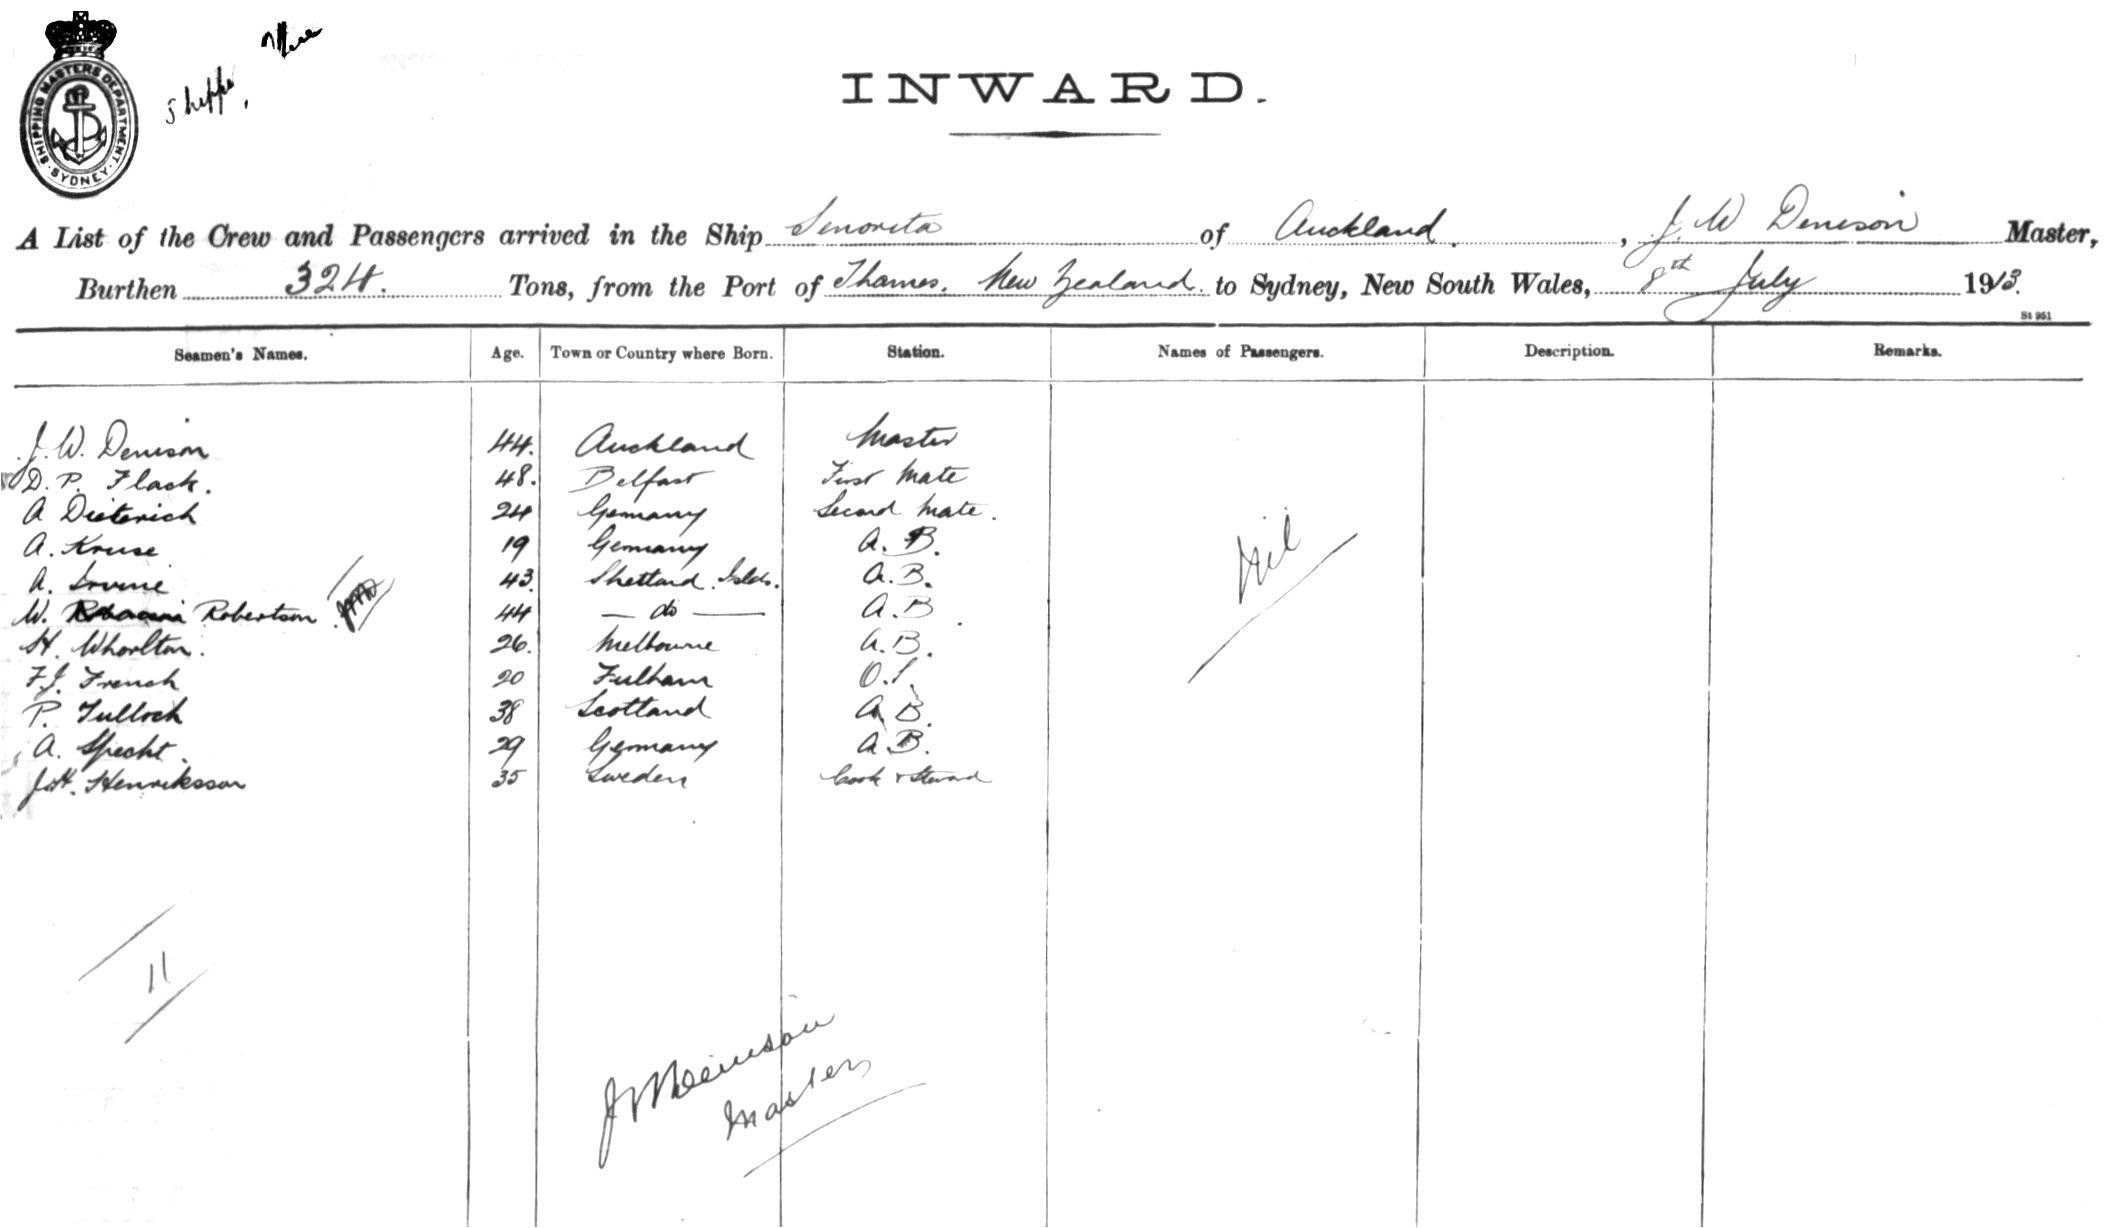 SHIPPING MASTERS DEPARTMENT. SYDNEY.
INWARD.
A List of the Crew and Passengers arrived in the Ship Senorita of Auckland. , J. W Denison Master,
Burthen 324. Tons, from the Port of Thames. New Zealand. to Sydney, New South Wales, 8th July 1913.
St 951
Seamen's Names. Age. Town or Country where Born. Station. Names of Passengers. Description. Remarks.
J. W. Denison 44. Auckland Master
D. P. Flack. 48. Belfast First Mate
A Dieterich 24 Germany Second Mate.
A. Kruse 19 Germany A. B.
A. Irvine 43 Shetland Islds. A. B.
W. Robertson 44 — do — A. B.
H. Whorlton. 26. Melbourne A. B.
F. J. French 20 Fulham O. S.
P. Tulloch 38 Scotland A B.
A. Specht. 29 Germany A B.
J. H. Henriksson 35 Sweden Cook & Steward
Nil
11
J W Denison
Master